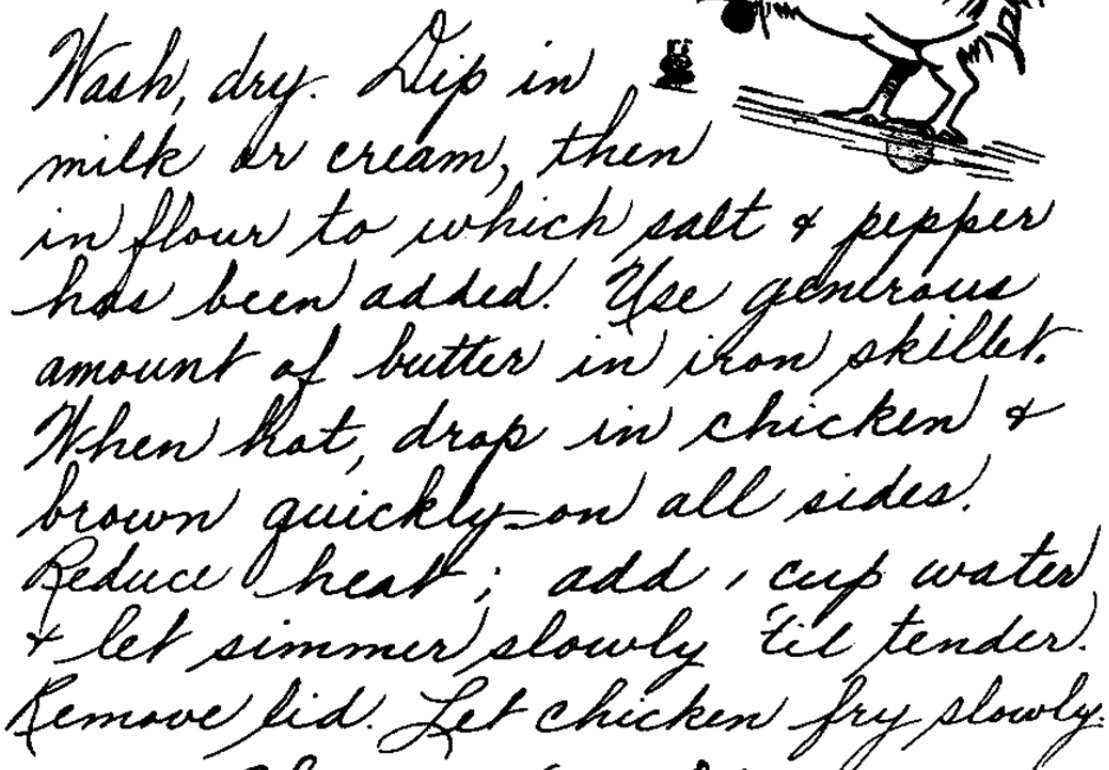 Wash, dry. Dip in
milk or cream, then
in flour to which salt & pepper
has been added. Use generous
amount of butter in iron skillet.
When hot, drop in chicken &
brown quickly - on all sides.
Reduce heat; add 1 cup water
& let simmer slowly 'til tender.
Remove lid. Let chicken fry slowly.